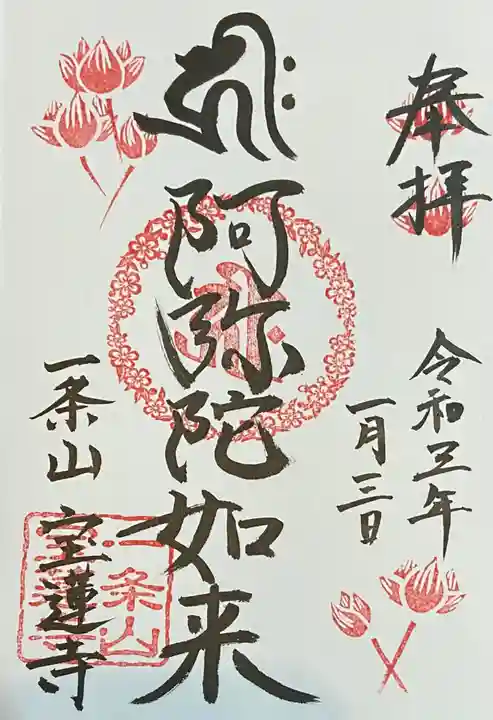 奉拝
令和五年
一月三日
阿弥陀如来
一条山
宝蓮寺